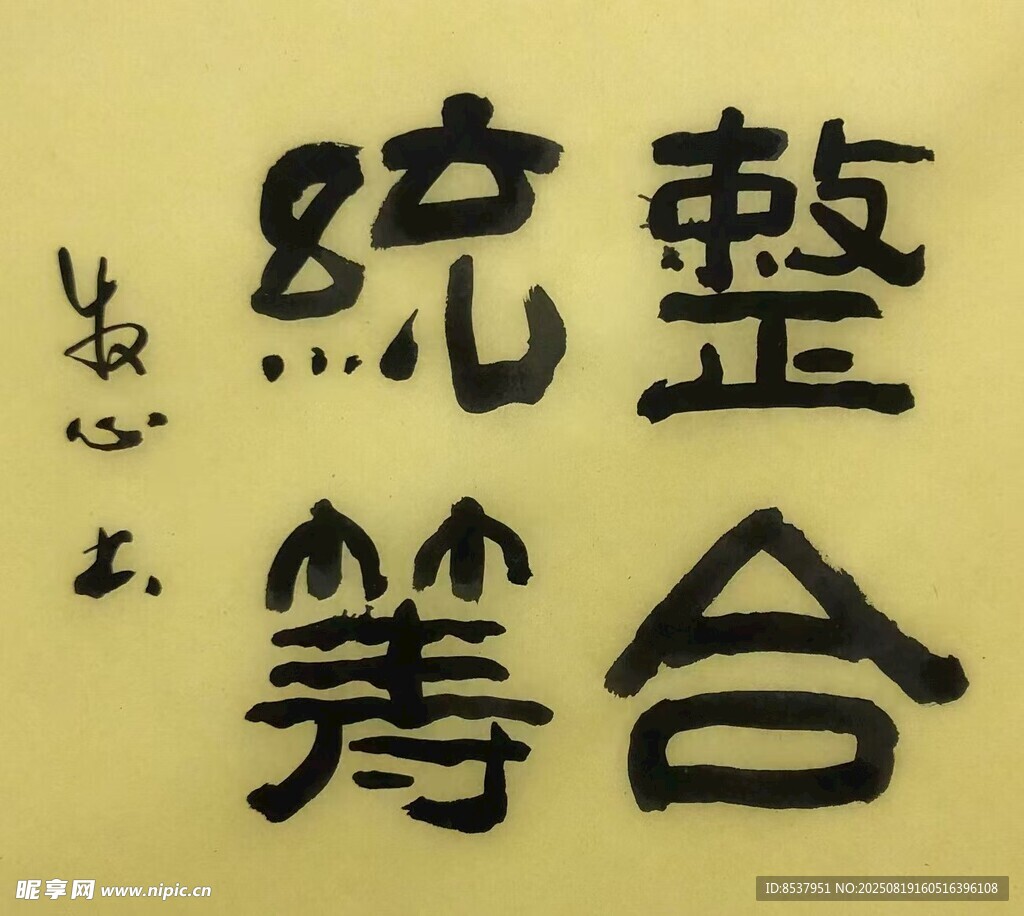 整合
統筹
心书
昵享网 www.nipic.cn
ID:8537951 NO:20250819160516396108